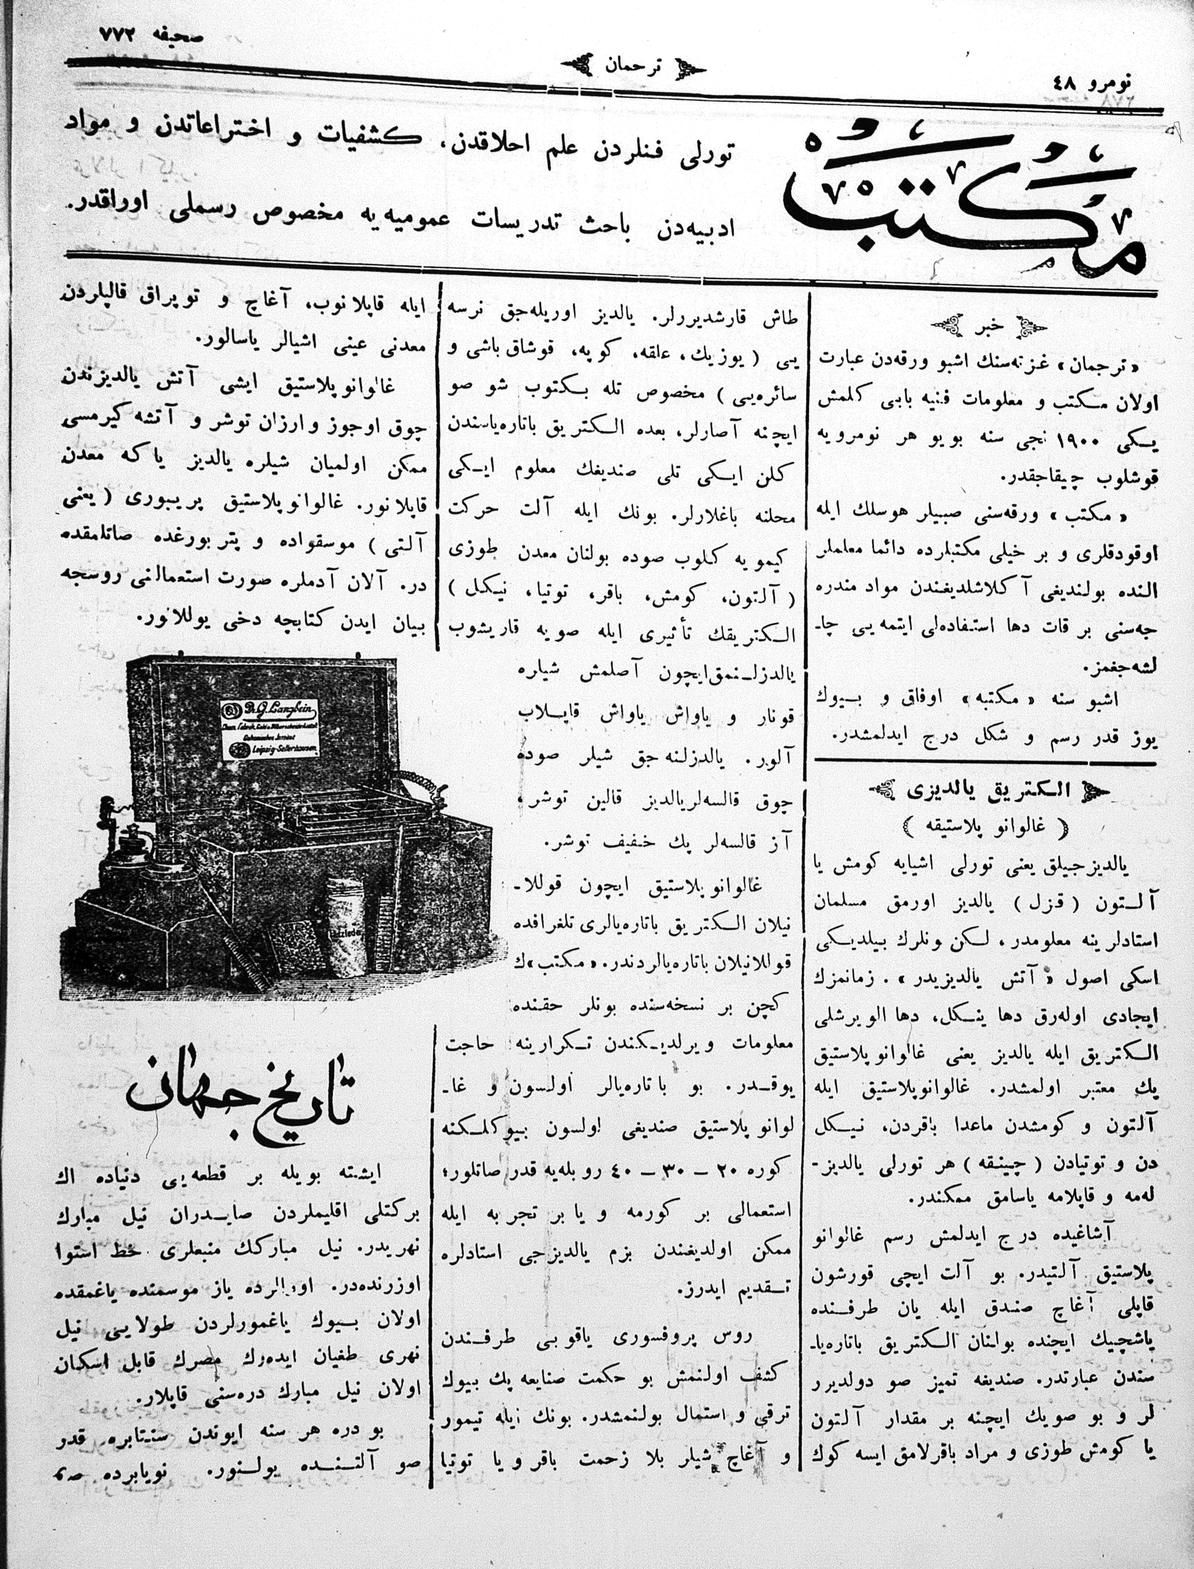 صحیفه ٧٧٢
ترجمان
نومرو ٤٨
مكتب
تورلی فنلردن علم احلاقدن، كشفیات و اختراعاتدن و مواد
ادبیه‌دن باحث تدریسات عمومیه‌یه مخصوص رسملی اوراقدر.
خبر
«ترجمان» غزته‌سنك اشبو ورقه‌دن عبارت
اولان مكتب و معلومات فنیه بابی كلمش
یكی ١٩٠٠ نجی سنه بویو هر نومرویه
قوشلوب چیقاجقدر.
«مكتب» ورقه‌سنی صبیلر هوسلك ایله
اوقودقلری و بر خیلی مكتبلرده دائما معلملر
النده بولندیغی آكلاشلدیغندن مواد مندره
جه‌سنی بر قات دها استفاده‌لی ایتمه‌یی چا۔
لشه‌جغمز.
اشبو سنه «مكتبه» اوفاق و بیوك
یوز قدر رسم و شكل درج ایدلمشدر.
الكتریق یالدیزی
(غالوانو پلاستیقه)
یالدیزجیلق یعنی تورلی اشیایه كومش یا
آلتون (قزل) یالدیز اورمق مسلمان
استادلرینه معلومدر، لكن ونلرك بیلدیكی
اسكی اصول «آتش یالدیزیدر». زمانمزك
ایجادی اوله‌رق دها ینكل، دها الویرشلی
الكتریق ایله یالدیز یعنی غالوانوپلاستیق
پك معتبر اولمشدر. غالوانوپلاستیق ایله
آلتون و كومشدن ماعدا باقردن، نیكل
دن و توتیادن (چینقه) هر تورلی یالدیز۔
له‌مه و قاپلامه یاسامق ممكندر.
آشاغیده درج ایدلمش رسم غالوانو
پلاستیق آلتیدر. بو آلت ایچی قورشون
قاپلی آغاچ صندق ایله یان طرفنده
پاشچیك ایچنده بولنان الكتریق باتاره‌یا۔
سندن عبارتدر. صندیغه تمیز صو دولدیرر
لر و بو صویك ایچنه بر مقدار آلتون
یا كومش طوزی و مراد باقرلامق ایسه كوك
طاش قارشدیررلر. یالدیز اوریله‌جق نرسه
یی (یوزیك، علقه، كوپه، قوشاق باشی و
سائره‌یی) مخصوص تله بكتوب شو صو
ایچنه آصارلر، بعده الكتریق باتاره‌یاسندن
كلن ایكی تلی صندیغك معلوم ایكی
محلنه باغلارلر. بونك ایله آلت حركت
كیمویه كلوب صوده بولنان معدن طوزی
(آلتون، كومش، باقر، توتیا، نیكل)
الكتریقك تأثیری ایله صویه قاریشوب
یالدزلنمق ایچون آصلمش شیلره
قونار و یاواش یاواش قاپلاب
آلور. یالدزلنه‌جق شیلر صوده
چوق قالسه‌لر یالدیز قالین توشر،
آز قالسه‌لر پك خفیف توشر.
غالوانوپلاستیق ایچون قوللا۔
نیلان الكتریق باتاره‌یالری تلغرافده
قوللانیلان باتاره‌یالردندر. «مكتب»ك
كچن بر نسخه‌سنده بونلر حقنده
معلومات ویرلدیكندن تكرارینه حاجت
یوقدر. بو باتاره‌یالر اولسون و غا۔
لوانوپلاستیق صندیغی اولسون بیوكلكنه
كوره ٢٠ – ٣٠ – ٤٠ روبله‌یه قدر صاتلور؛
استعمالی بر كورمه و یا بر تجربه ایله
ممكن اولدیغندن بزم یالدیزجی استادلره
تقدیم ایدرز.
روس پروفسوری یاقوبی طرفندن
كشف اولنمش بو حكمت صنایعه پك بیوك
ترقی و استمال بولنمشدر. بونك ایله تیمور
و آغاچ شیلر بلا زحمت باقر و یا توتیا
ایله قاپلانوب، آغاچ و توپراق قالپلردن
معدنی عینی اشیالر یاسالور.
غالوانوپلاستیق ایشی آتش یالدیزندن
چوق اوجوز و ارزان توشر و آتشه كیرمسی
ممكن اولمیان شیلره یالدیز یا كه معدن
قاپلانور. غالوانوپلاستیق پریبوری (یعنی
آلتی) موسقواده و پتربورغده صاتلمقده
در. آلان آدملره صورت استعمالنی روسجه
بیان ایدن كتابچه دخی یوللانور.
Dr. G. Langbein
Leipzig-Sellerhausen
تاریخ جهان
ایشته بویله بر قطعه‌یی دنیاده اك
بركتلی اقلیملردن صایدران نیل مبارك
نهریدر. نیل مباركك منبعلری خط استوا
اوزرنده‌در. اورالرده یاز موسمنده یاغمقده
اولان بیوك یاغمورلردن طولایی نیل
نهری طغیان ایده‌رك مصرك قابل اسكان
اولان نیل مبارك دره‌سنی قاپلار.
بو دره هر سنه ایوندن سنتابره قدر
صو آلتنده بولنور. نویابرده